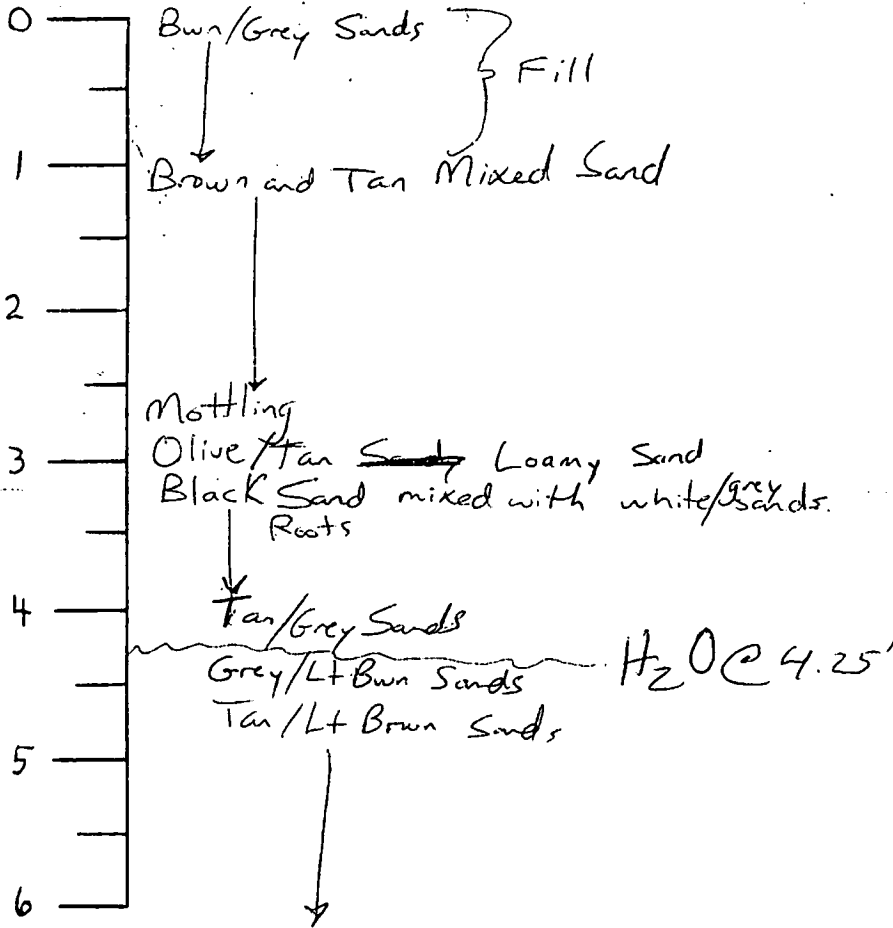 0 Bwn/Grey Sands
Fill
1 Brown and Tan Mixed Sand
2
Mottling
3 Olive/Tan Loamy Sand
Black Sand mixed with white/grey sands.
Roots
4 Tan/Grey Sands
H₂O @ 4.25'
Grey/Lt Bwn Sands
Tan/Lt Brown Sands
5
6